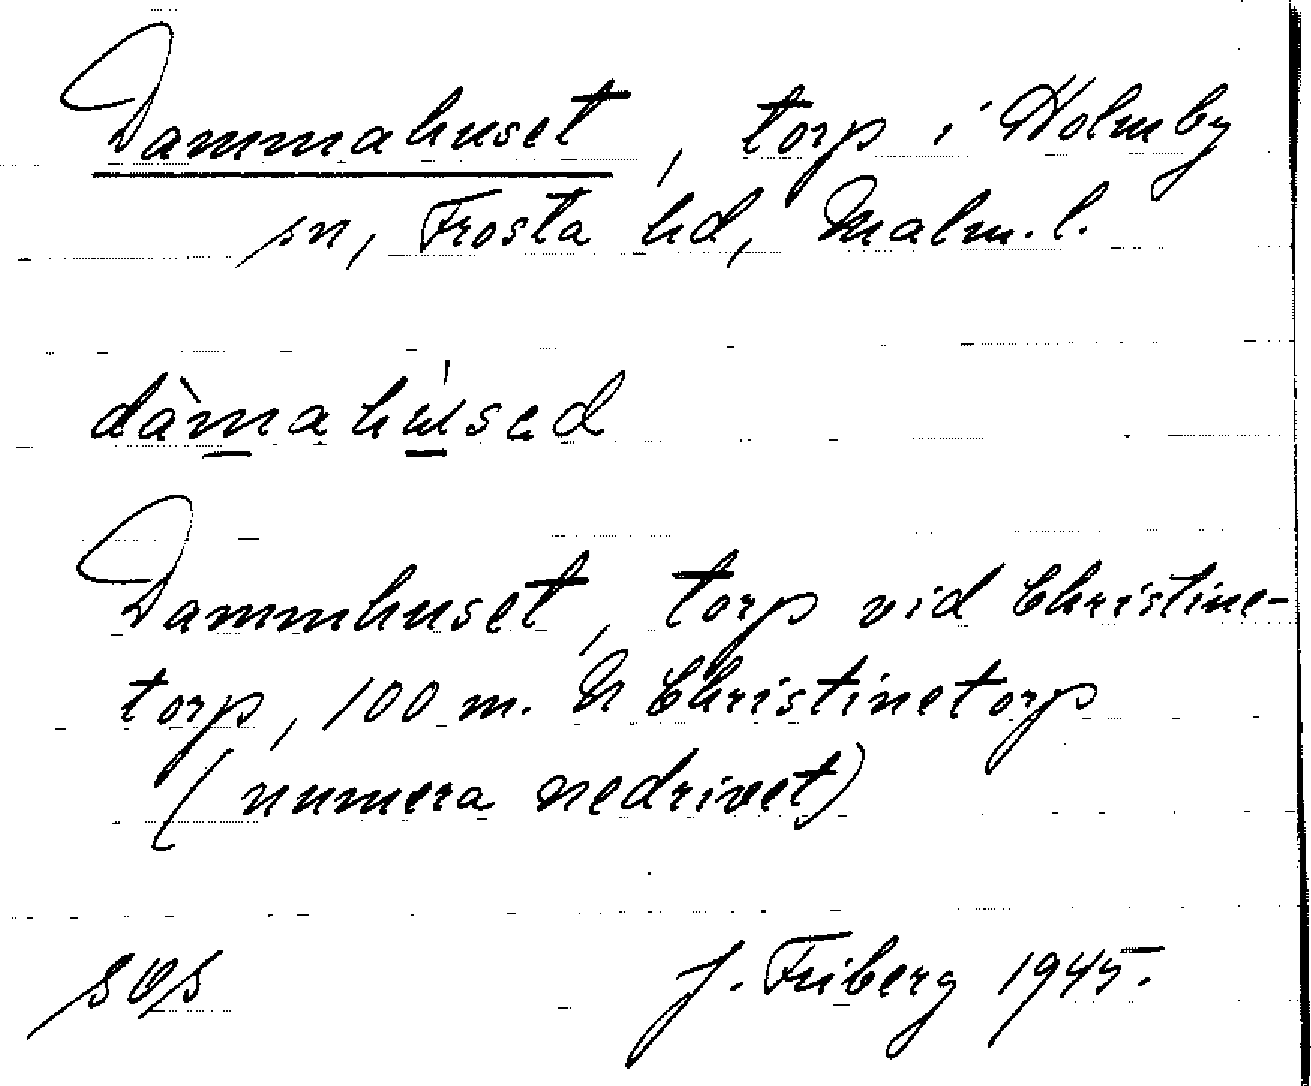 Dammahuset, torp i Holmby
sn, Frosta hd, Malm. l.
dàmahúsəd
Dammhuset, torp vid Christine-
torp, 100 m. N Christinetorp
(numera nedrivet)
J. Friberg 1945.